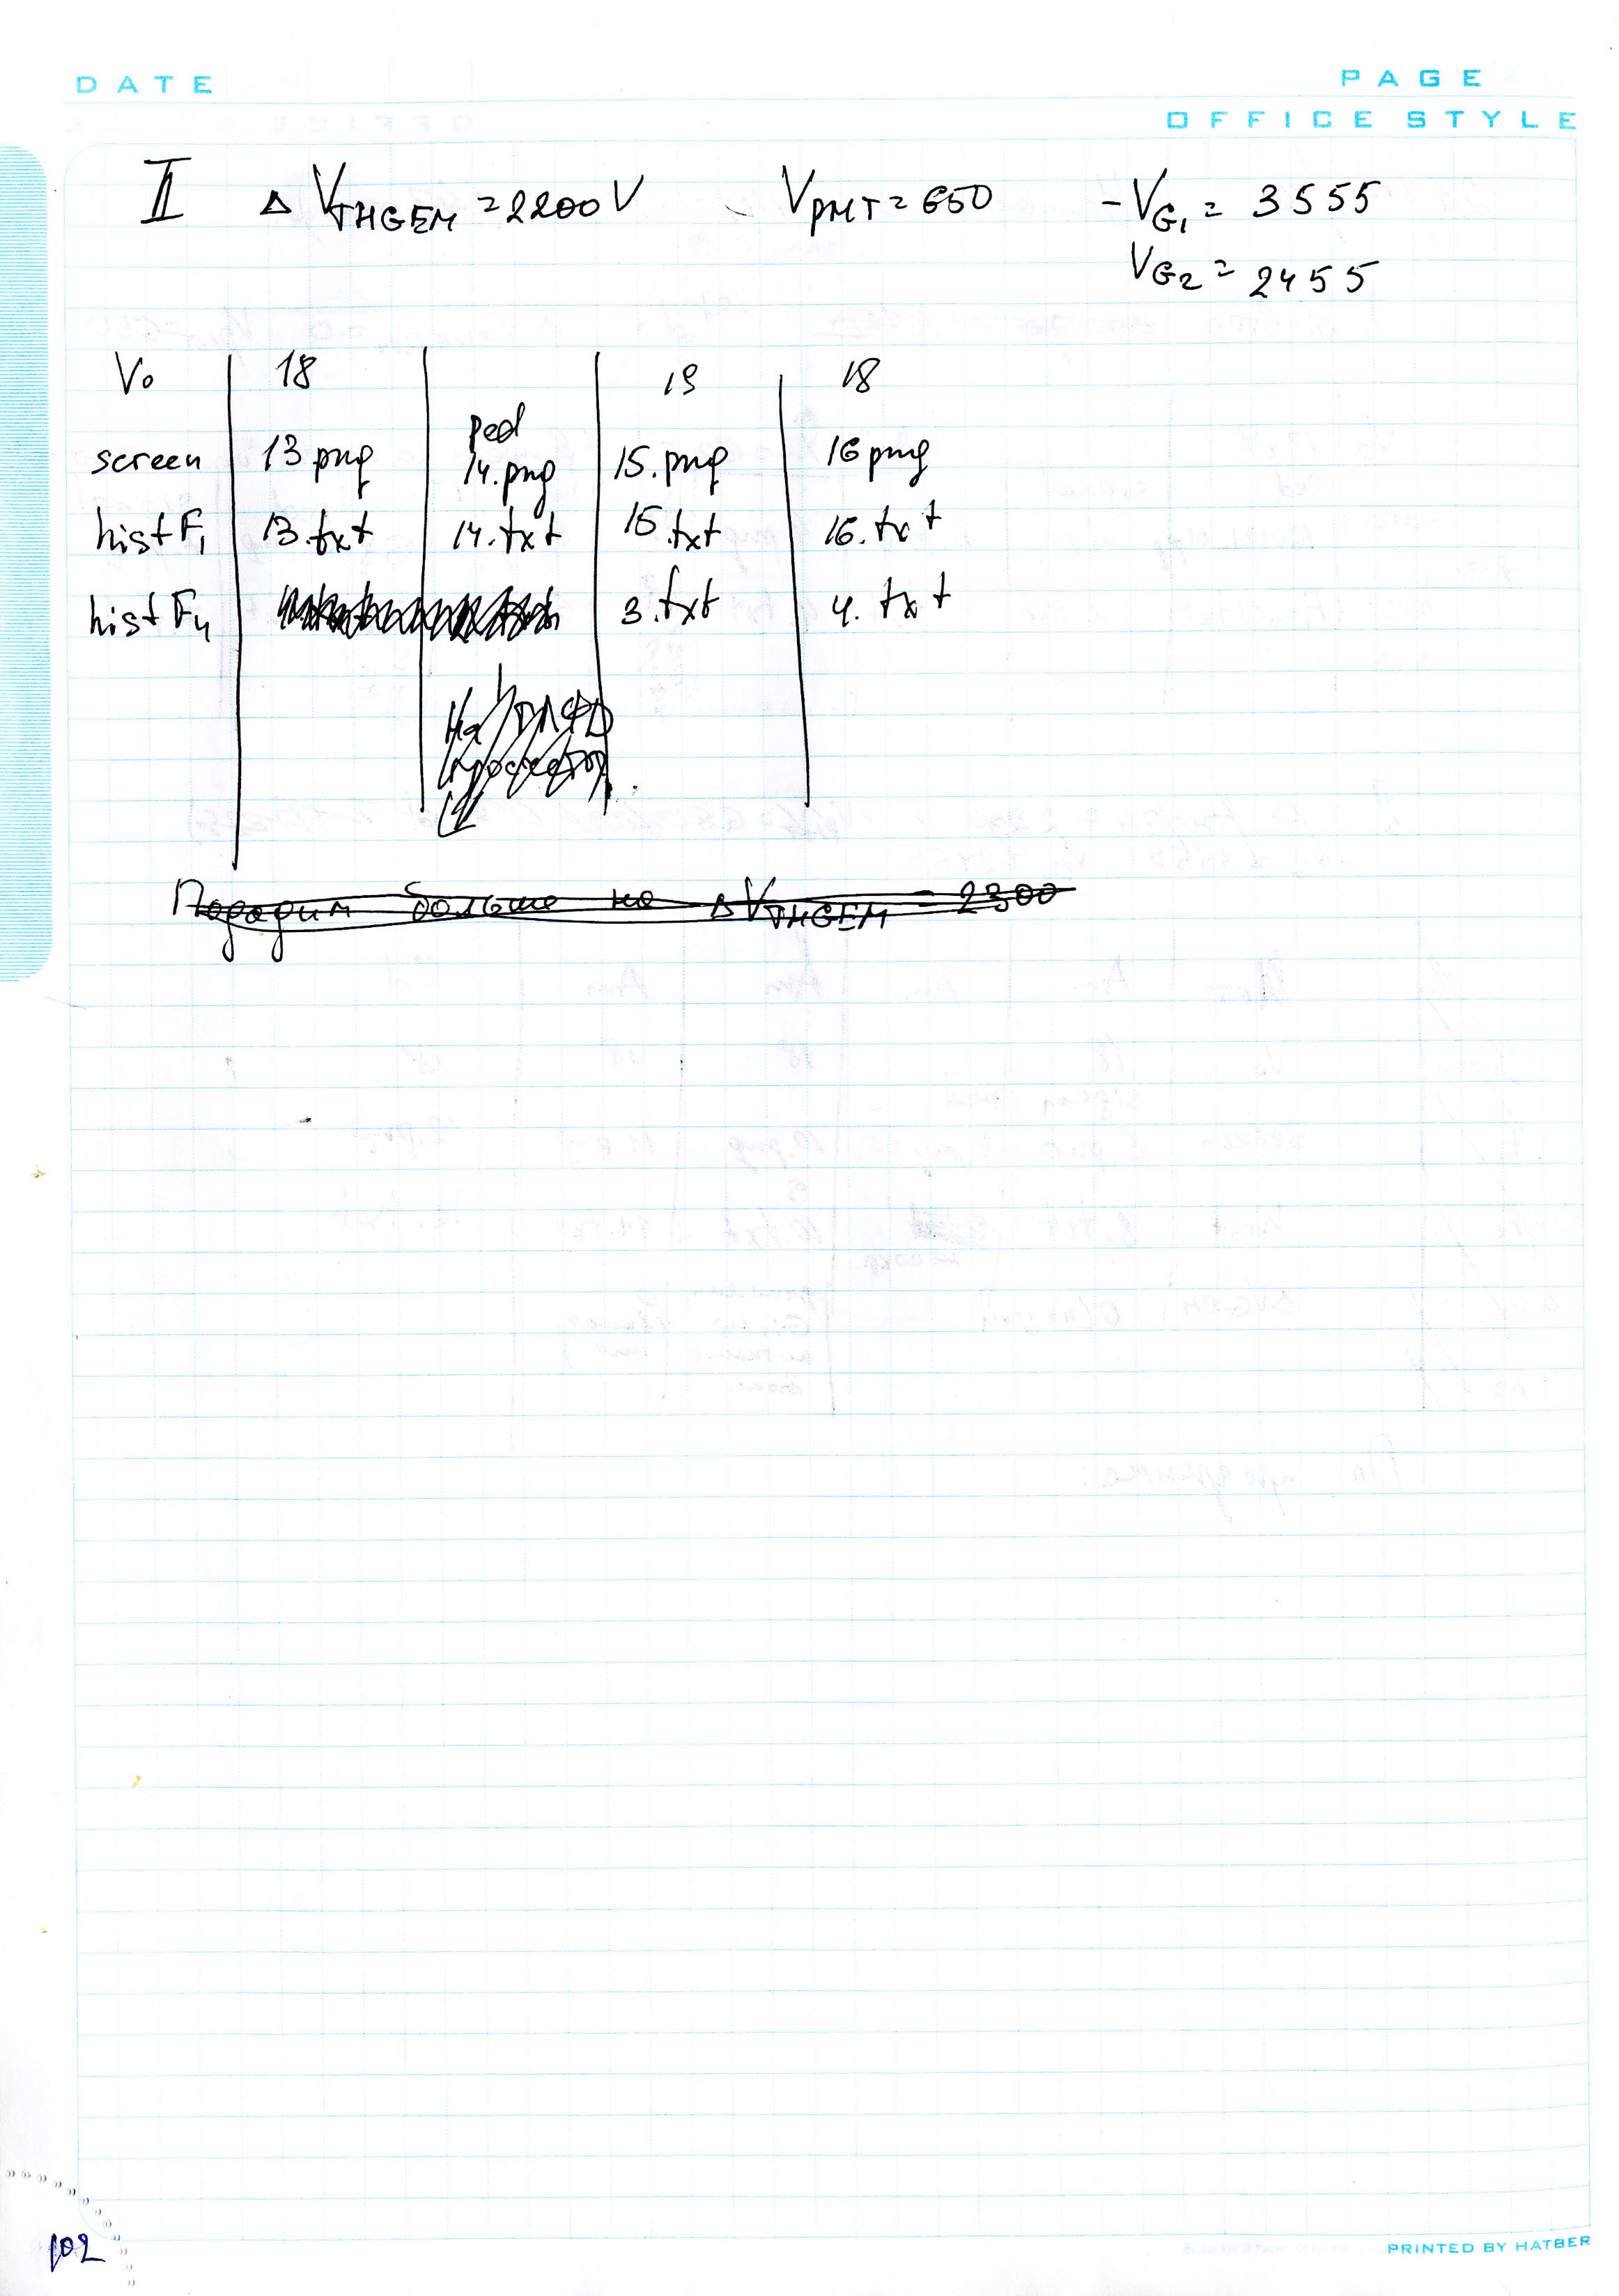 DATE PAGE
OFFICE STYLE
II ΔV_THGEM = 2200 V V_PMT = 650 -V_G1 = 3555
V_G2 = 2455
V₀ 18 19 18
ped
screen 13 png 14.png 15.png 16 png
hist F₁ 13.txt 14.txt 15.txt 16.txt
hist F₄ 3.txt 4.txt
больше на ΔV_THGEM = 2300
102
PRINTED BY HATBER